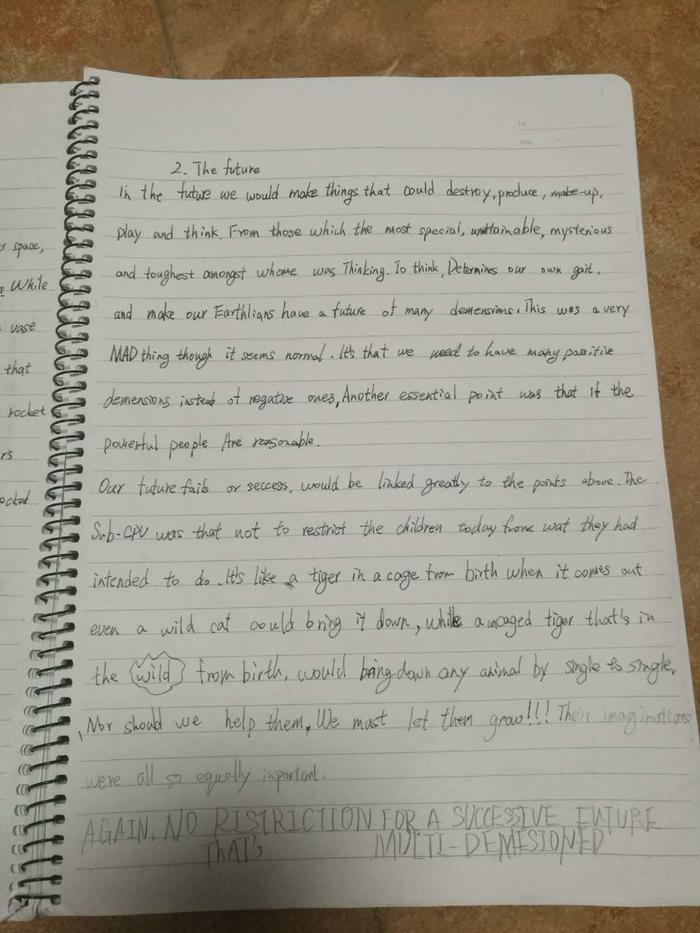 2. The future
In the future we would make things that could destroy, produce, make-up,
play and think. From those which the most special, unattainable, mysterious
and toughest amongst whome was Thinking. To think, Determines our own gait.
and make our Earthlians have a future of many demensions. This was a very
MAD thing though it seems normal. It's that we need to have many possitive
demensions instead of negative ones, Another essential point was that if the
powerful people Are reasonable.
Our future fails or seccess, would be linked greatly to the points above. The
Sub-CPU was that not to restrict the children today from wat they had
intended to do. It's like a tiger in a cage from birth when it comes out
even a wild cat could bring it down, while a uncaged tiger that's in
the wild from birth, would bring down any animal by single to single.
Nor should we help them, We must let them grow!!! Their imaginations
were all so equally inportant.
AGAIN, NO RISTRICTION FOR A SUCCESSIVE FUTURE
THAT'S MULTI-DEMESIONED
r space,
While
vase
that
rocket
rs
ocked